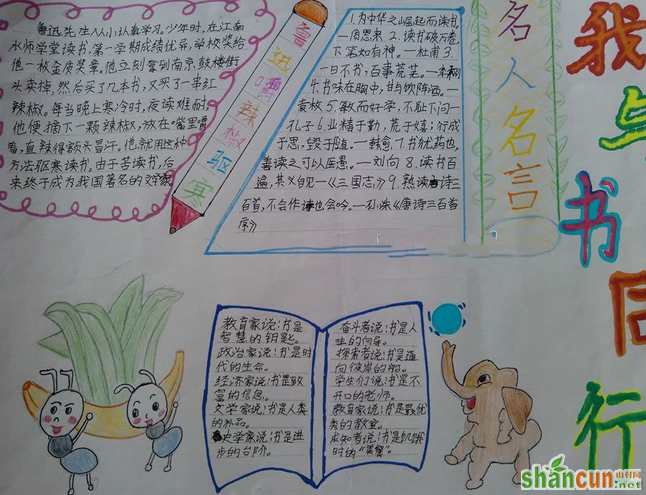 鲁迅先生从小认真学习。少年时,在江南
水师学堂读书,第一学期成绩优异,学校奖给
他一枚金质奖章。他立刻拿到南京鼓楼街
头卖掉,然后买了几本书,又买了一串红
辣椒。每当晚上寒冷时,夜读难耐,
他便摘下一颗辣椒,放在嘴里嚼
着,直辣得额头冒汗。他就用这种
方法驱寒读书。由于苦读书,后
来终于成为我国著名的文学家
鲁迅嚼辣椒驱寒
1.为中华之崛起而读书。
—周恩来 2.读书破万卷,
下笔如有神。—杜甫 3.
一日不书,百事荒芜。
书味在胸中,甘与饮陈酒。—
袁枚 5.敏而好学,不耻下问—
孔子 6.业精于勤,荒于嬉;行成
于思,毁于随。—韩愈 7.书犹药也,
善读之可以医愚。—刘向 8.读书百
遍,其义自见—《三国志》 9.熟读唐诗三
百首,不会作诗也会吟。—孙洙《唐诗三百首
序》
名人名言
我与书同行
教育家说:书是
智慧的钥匙。
政治家说:书是时
代的生命。
经济家说:书是致
富的信息。
文学家说:书是人类
的补品。
史学家说:书是进
步的台阶。
奋斗者说:书是人
生的向导。
探索者说:书是通
向彼岸的船。
学生们说:书是不
开口的老师。
教育家说:书是最优
秀的教室。
求知者说:书是饥饿
时的“美餐”。
shancun
山村网
.net